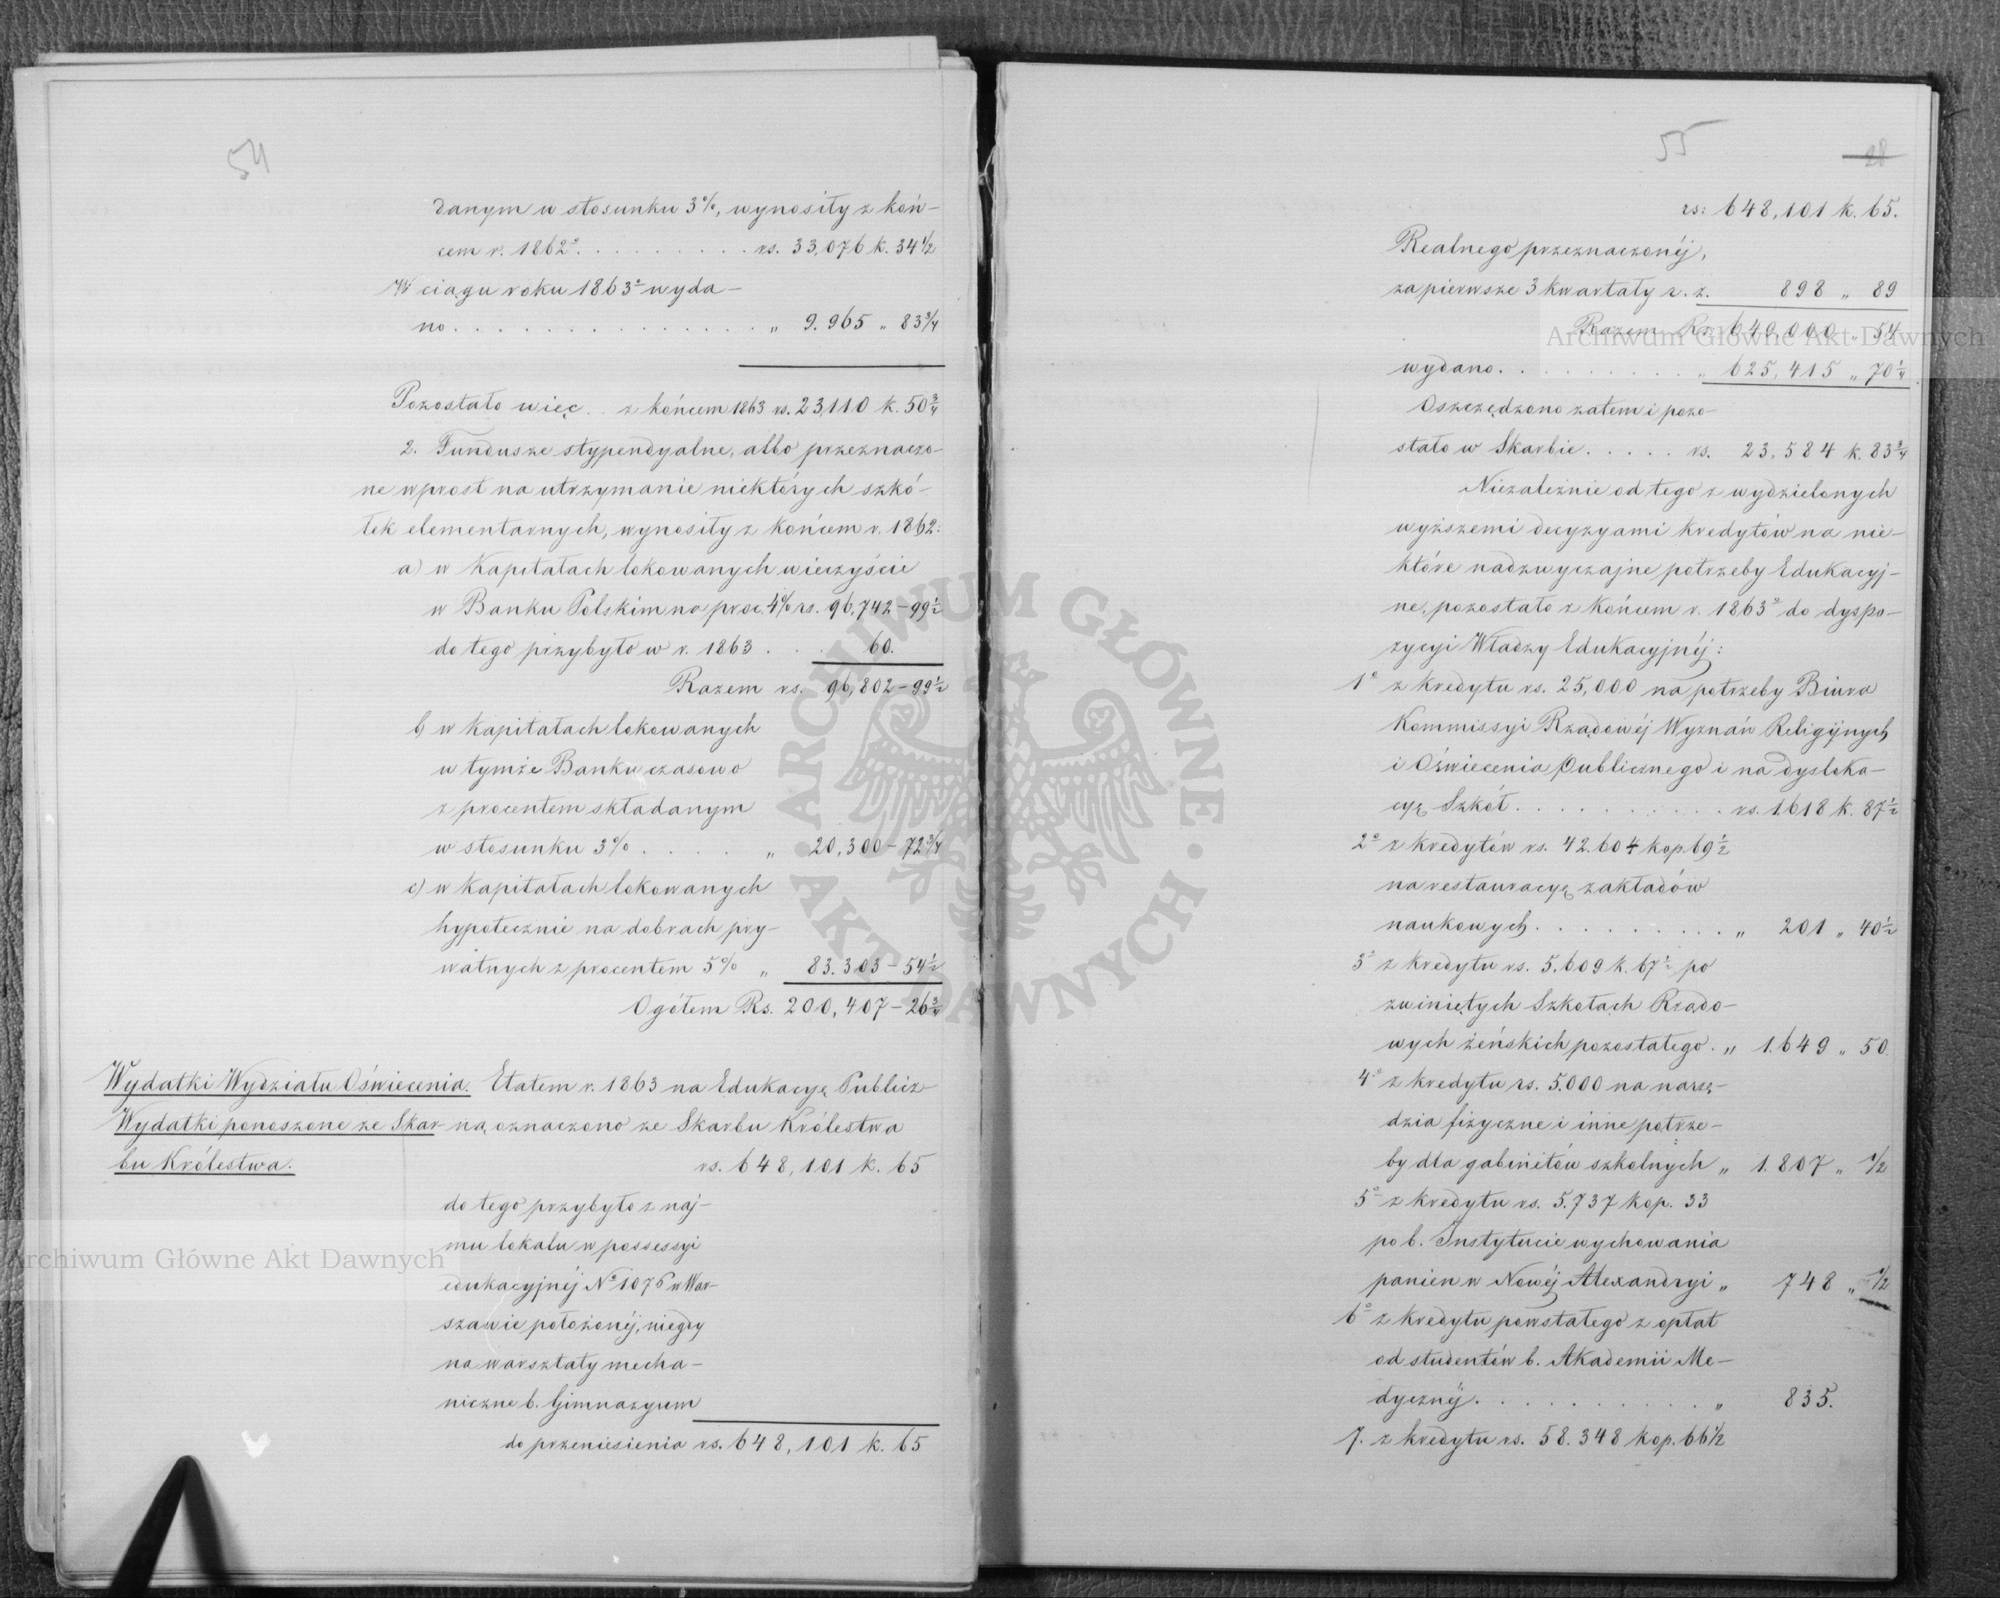 54
danym w stosunku 3%, wynosiły z koń-
cem r. 1862º . . . . . . . . . rs. 33,076 k. 34 1/2
W ciągu roku 1863º wyda-
no . . . . . . . . . . . . . . . „ 9.965 „ 83 3/4
Pozostało więc . . z końcem 1863 rs. 23,110 k. 50 3/4
2. Fundusze stypendyalne, albo przeznaczo-
ne wprost na utrzymanie niektórych szkó-
łek elementarnych, wynosiły z końcem r. 1862:
a) w kapitałach lokowanych wieczyście
w Banku Polskim na proc. 4% rs. 96,742 - 99 1/2
do tego przybyło w r. 1863 . . . 60.
Razem rs. 96,802 - 99 1/2
b) w kapitałach lokowanych
w tymże Banku czasowo
z procentem składanym
w stosunku 3% . . . . . „ 20,300 - 72 3/4
c) w kapitałach lokowanych
hypotecznie na dobrach pry-
watnych z procentem 5% „ 83.303 - 54 1/2
Ogółem Rs. 200,407 - 26 3/4
Wydatki Wydziału Oświecenia. Etatem r. 1863 na Edukacyę Publicz-
Wydatki ponoszone ze Skar- ną, oznaczono ze Skarbu Królestwa
bu Królestwa. rs. 648,101 k. 65
do tego przybyło z naj-
mu lokalu w possessyi
edukacyjnéj Nº 1076 w War-
szawie położonéj, niegdy
na warsztaty mecha-
niczne b. Gimnazyum
do przeniesienia rs. 648,101 k. 65
55
28
rs: 648,101 k. 65.
Realnego przeznaczonéj,
za pierwsze 3 kwartały r. z. 898 „ 89
Razem Rs. 649,000 „ 54
wydano . . . . . . . . . „ 625,415 „ 70 1/4
Oszczędzono zatem i pozo-
stało w Skarbie . . . . . rs. 23,584 k. 83 3/4
Niezależnie od tego z wydzielonych
wyższemi decyzyami kredytów na nie-
które nadzwyczajne potrzeby Edukacyj-
ne, pozostało z końcem r. 1863º do dyspo-
zycyi Władzy Edukacyjnéj:
1º z kredytu rs. 25,000 na potrzeby Biura
Kommissyi Rządowéj Wyznań Religijnych
i Oświecenia Publicznego i na dysloka-
cyę Szkół . . . . . . . . . . rs. 1.618 k. 87 1/2
2º z kredytów rs. 42.604 kop. 69 1/2
na restauracyę zakładów
naukowych . . . . . . . . . . „ 201 „ 40 1/2
3º z kredytu rs. 5,609 k. 67 1/2 po
zwiniętych Szkołach Rządo-
wych żeńskich pozostałego . „ 1.649 „ 50
4º z kredytu rs. 5.000 na narzę-
dzia fizyczne i inne potrze-
by dla gabinetów szkolnych „ 1.807 „ 1/2
5º z kredytu rs. 5.737 kop. 33
po b. Instytucie wychowania
panien w Nowéj Alexandryi „ 748 „ 1/2
6º z kredytu powstałego z opłat
od studentów b. Akademii Me-
dycznéj . . . . . . . . . . . „ 835.
7. z kredytu rs. 58.348 kop. 66 1/2
Archiwum Główne Akt Dawnych
Archiwum Główne Akt Dawnych
ARCHIWUM GŁÓWNE · AKT DAWNYCH ·